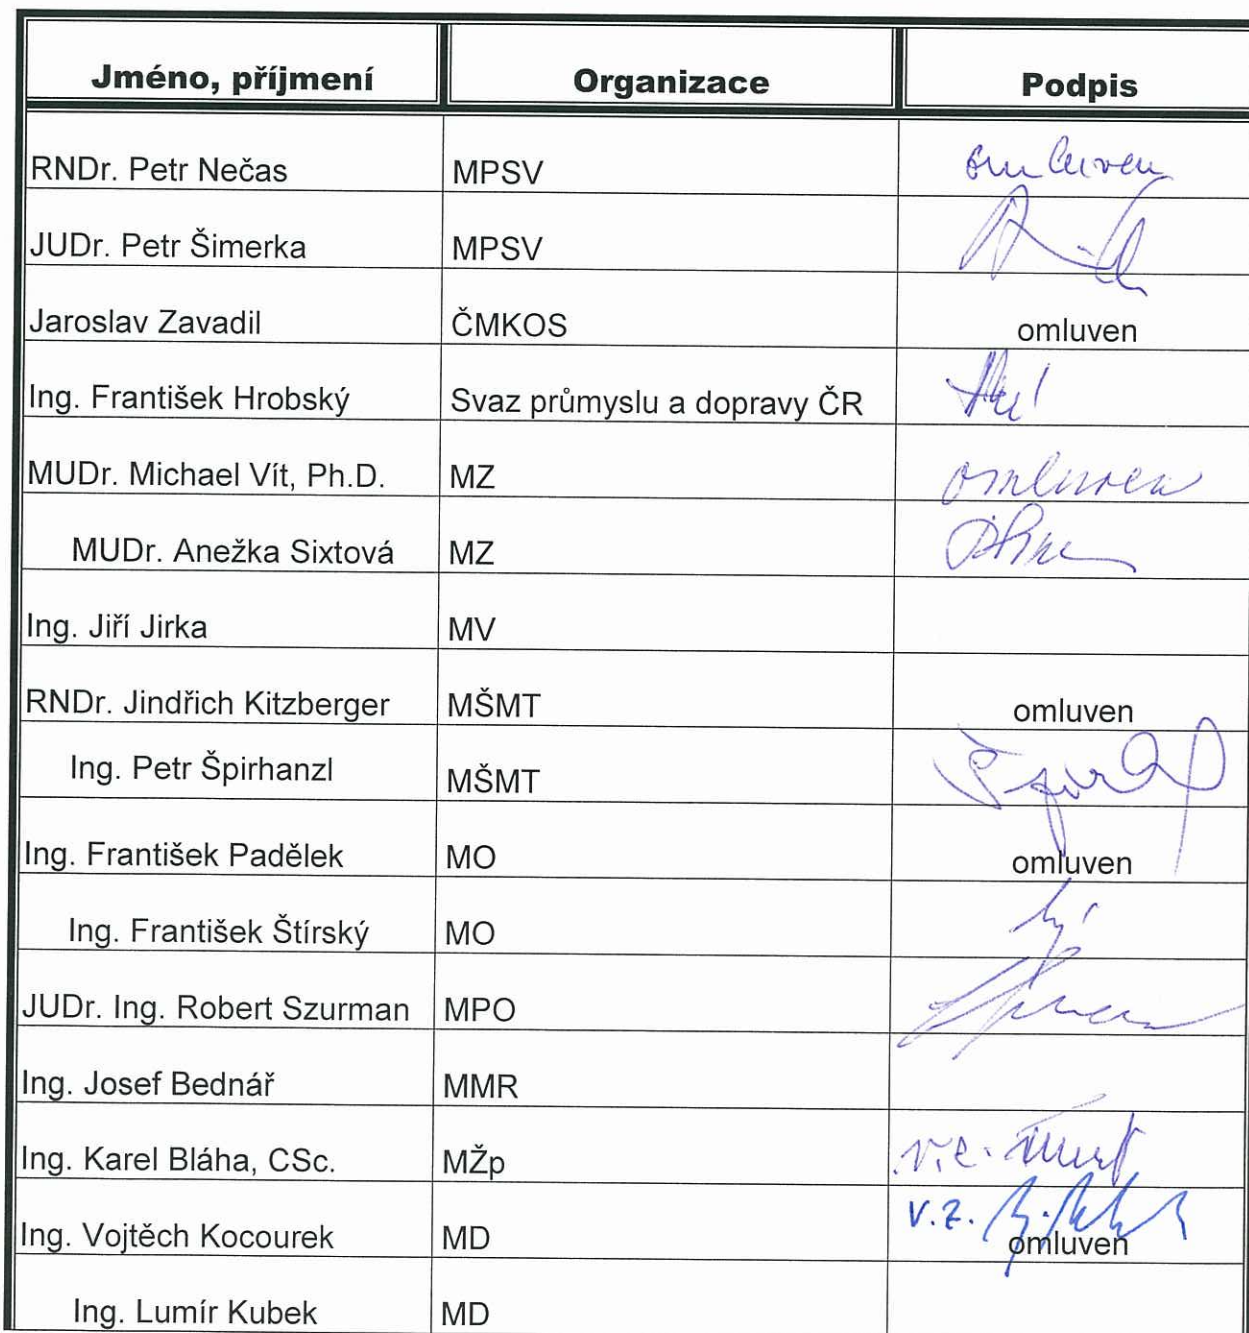 Jméno, příjmení Organizace Podpis
RNDr. Petr Nečas MPSV omluven
JUDr. Petr Šimerka MPSV
Jaroslav Zavadil ČMKOS omluven
Ing. František Hrobský Svaz průmyslu a dopravy ČR
MUDr. Michael Vít, Ph.D. MZ omluven
MUDr. Anežka Sixtová MZ
Ing. Jiří Jirka MV
RNDr. Jindřich Kitzberger MŠMT omluven
Ing. Petr Špirhanzl MŠMT
Ing. František Padělek MO omluven
Ing. František Štírský MO
JUDr. Ing. Robert Szurman MPO
Ing. Josef Bednář MMR
Ing. Karel Bláha, CSc. MŽp
Ing. Vojtěch Kocourek MD v.z. omluven
Ing. Lumír Kubek MD